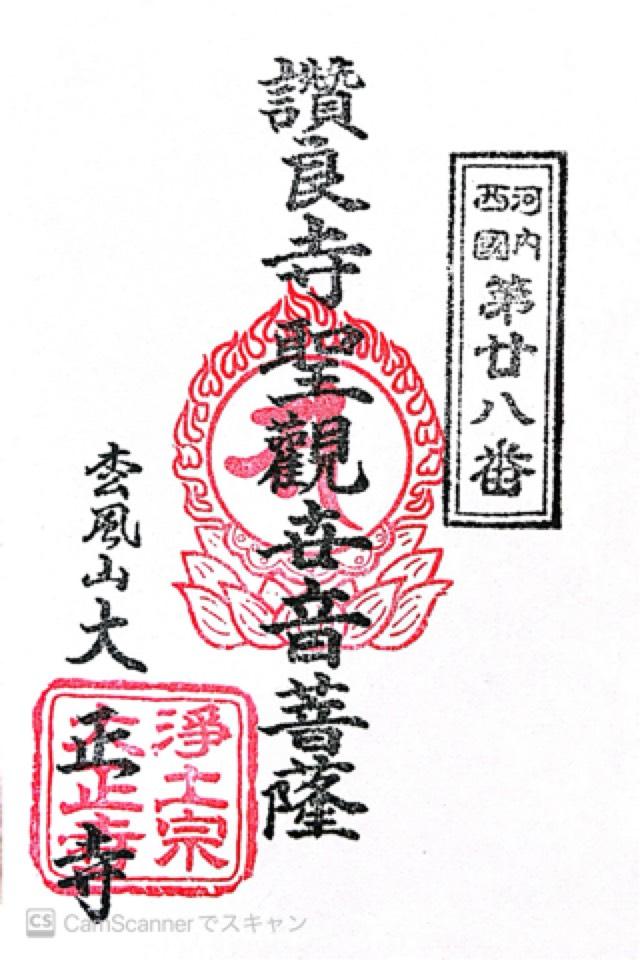 河内
西國
第廿八番
讚良寺聖觀世音菩薩
枩風山大正寺
淨土宗
大正寺
CS CamScannerでスキャン